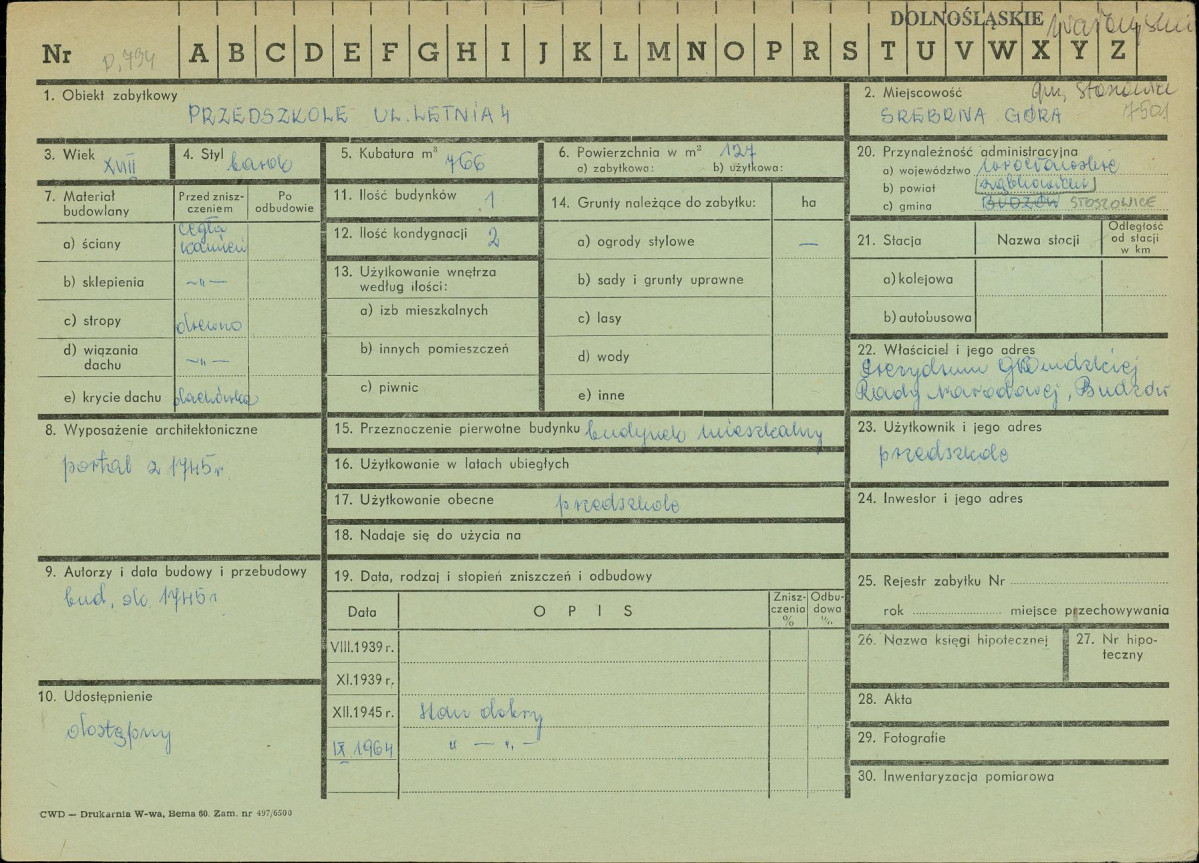 DOLNOŚLĄSKIE
Nr D.794 A B C D E F G H I J K L M N O P R S T U V W X Y Z
1. Obiekt zabytkowy
PRZEDSZKOLE UL. LETNIA 4
2. Miejscowość gm. Stoszowice
SREBRNA GÓRA 7501
3. Wiek XVIII
4. Styl barok
5. Kubatura m³ 766
6. Powierzchnia w m² 127
a) zabytkowa: b) użytkowa:
20. Przynależność administracyjna
a) województwo wrocławskie
b) powiat ząbkowicki
c) gmina BUDZÓW STOSZOWICE
7. Materiał budowlany
Przed zniszczeniem
Po odbudowie
a) ściany cegła kamień
b) sklepienia —„—
c) stropy drewno
d) wiązania dachu —„—
e) krycie dachu dachówka
11. Ilość budynków 1
12. Ilość kondygnacji 2
13. Użytkowanie wnętrza według ilości:
a) izb mieszkalnych
b) innych pomieszczeń
c) piwnic
14. Grunty należące do zabytku: ha
a) ogrody stylowe —
b) sady i grunty uprawne
c) lasy
d) wody
e) inne
21. Stacja Nazwa stacji Odległość od stacji w km
a) kolejowa
b) autobusowa
22. Właściciel i jego adres
Prezydium Gromadzkiej
Rady Narodowej, Budzów
8. Wyposażenie architektoniczne
portal z 1745 r.
15. Przeznaczenie pierwotne budynku budynek mieszkalny
16. Użytkowanie w latach ubiegłych
17. Użytkowanie obecne przedszkole
18. Nadaje się do użycia na
23. Użytkownik i jego adres
przedszkole
24. Inwestor i jego adres
9. Autorzy i data budowy i przebudowy
bud. ok. 1745 r.
19. Data, rodzaj i stopień zniszczeń i odbudowy
Data OPIS Zniszczenia % Odbudowa %
VIII.1939 r.
XI.1939 r.
XII.1945 r. stan dobry
IX 1964 „ — „ —
25. Rejestr zabytku Nr
rok miejsce przechowywania
26. Nazwa księgi hipotecznej
27. Nr hipoteczny
28. Akta
29. Fotografie
30. Inwentaryzacja pomiarowa
10. Udostępnienie
dostępny
CWD — Drukarnia W-wa, Bema 60. Zam. nr 497/6500